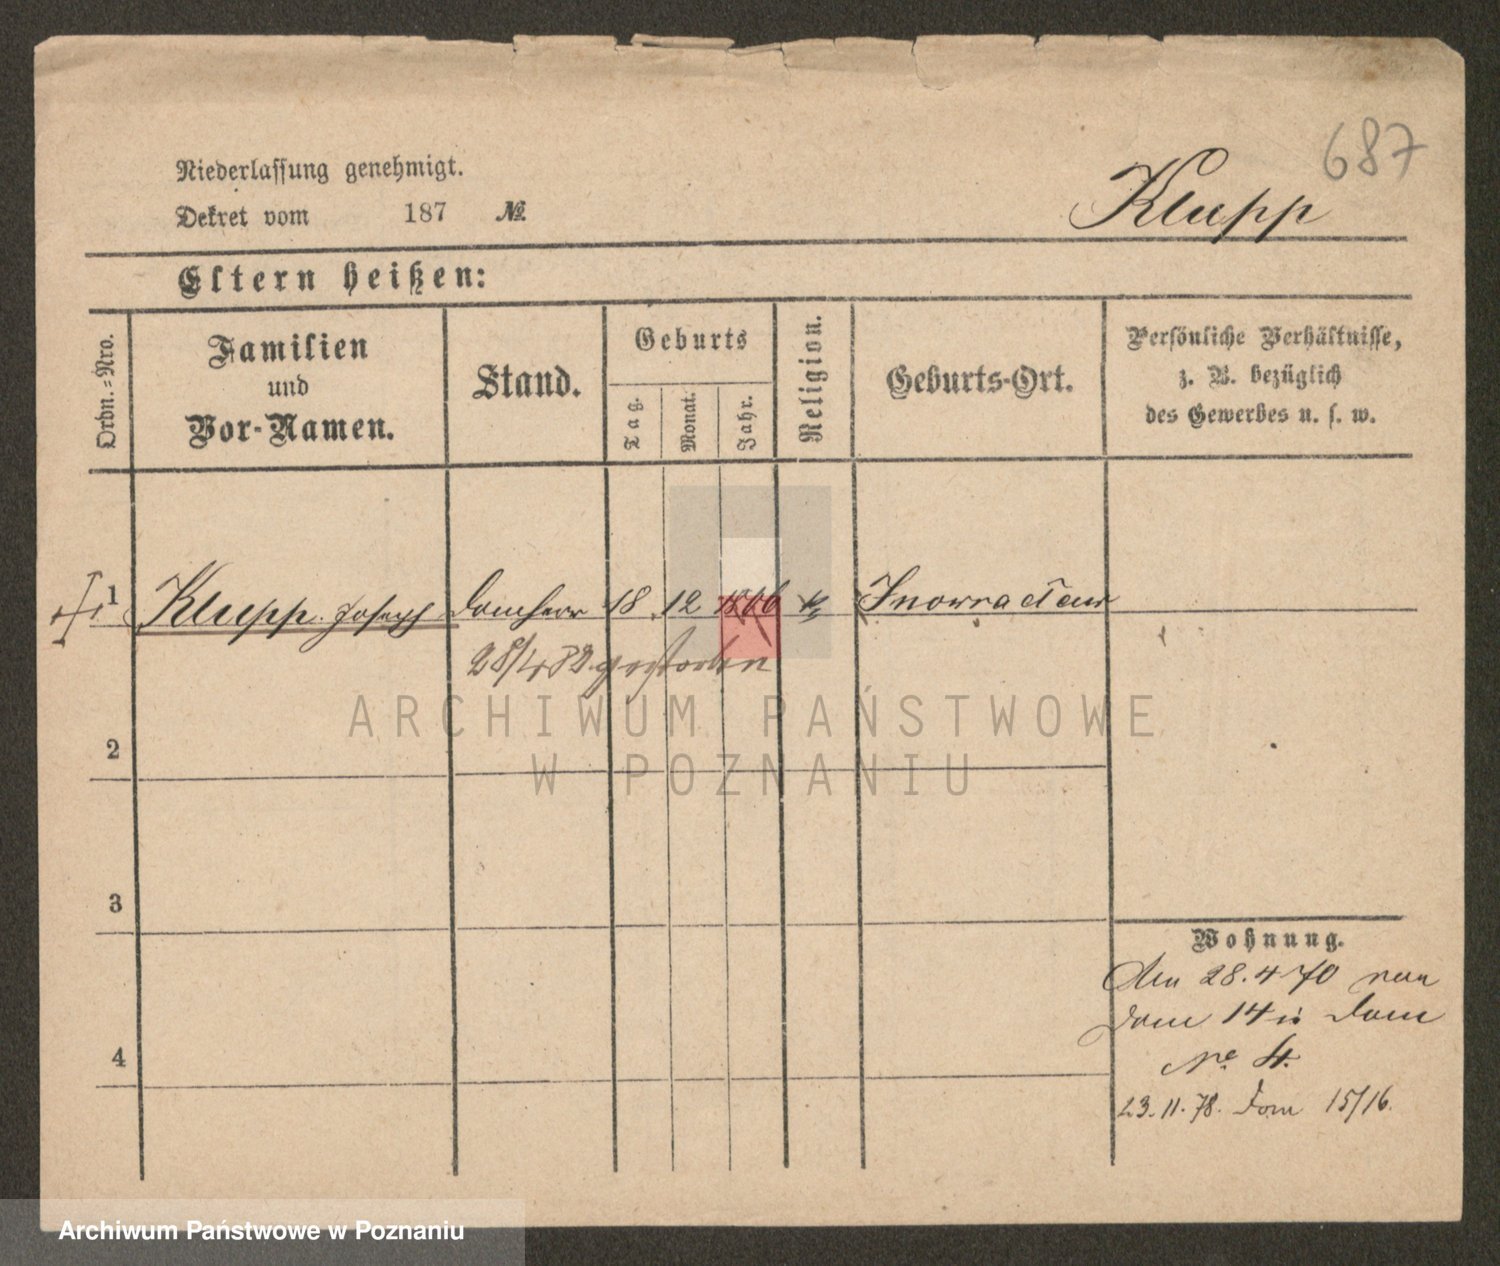 687
Niederlassung genehmigt.
Klupp
Dekret vom 187 №
Eltern heißen:
Ordn.-Nro.
Familien
und
Vor-Namen.
Stand.
Geburts
Tag.
Monat.
Jahr.
Religion.
Geburts-Ort.
Persönliche Verhältnisse,
z. B. bezüglich
des Gewerbes u. s. w.
1 Klupp Joseph Domherr 18 12 k
28/4 82 gestorben
ARCHIWUM PAŃSTWOWE
W POZNANIU
2
3
4
Wohnung.
28.4 70 von
Dom 14 Dom
No 4.
23.11.78. Dom 15/16.
Archiwum Państwowe w Poznaniu